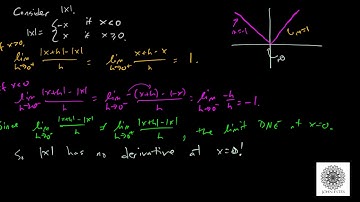 Consider |x|.
|x| = { -x if x<0
x if x≥0.
if x>0, lim h→0⁺ |x+h|-|x| / h = lim h→0⁺ x+h-x / h = 1.
if x<0
lim h→0⁻ |x+h|-|x| / h = lim h→0⁻ -(x+h) - (-x) / h = lim h→0⁻ -h / h = -1.
Since lim h→0⁻ |x+h|-|x| / h ≠ lim h→0⁺ |x+h|-|x| / h, the limit DNE at x=0.
So |x| has no derivative at x=0!
m=-1
m=1
JOHN ESTES